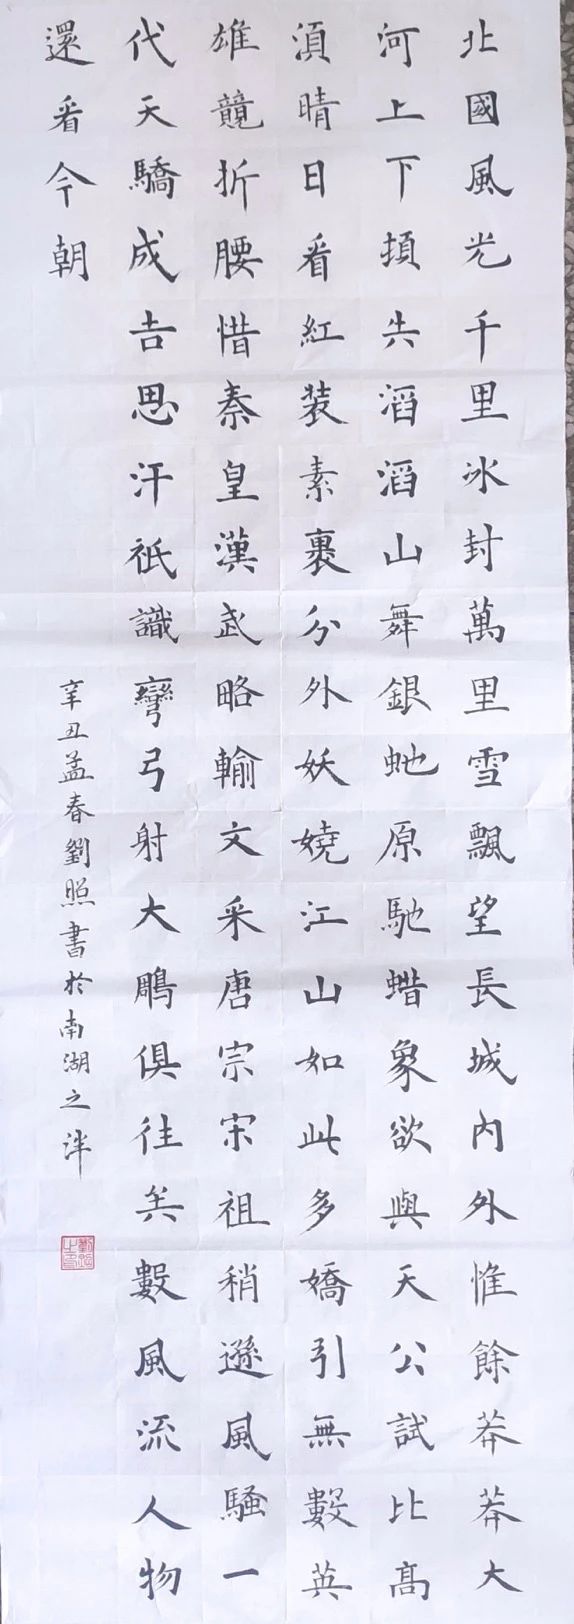 北國風光千里冰封萬里雪飄望長城內外惟餘莽莽大
河上下頓失滔滔山舞銀虵原馳蜡象欲與天公試比高
須晴日看紅裝素裹分外妖嬈江山如此多嬌引無數英
雄競折腰惜秦皇漢武略輸文采唐宗宋祖稍遜風騷一
代天驕成吉思汗祇識彎弓射大鵰俱往矣數風流人物
還看今朝
辛丑孟春劉照書於南湖之泮